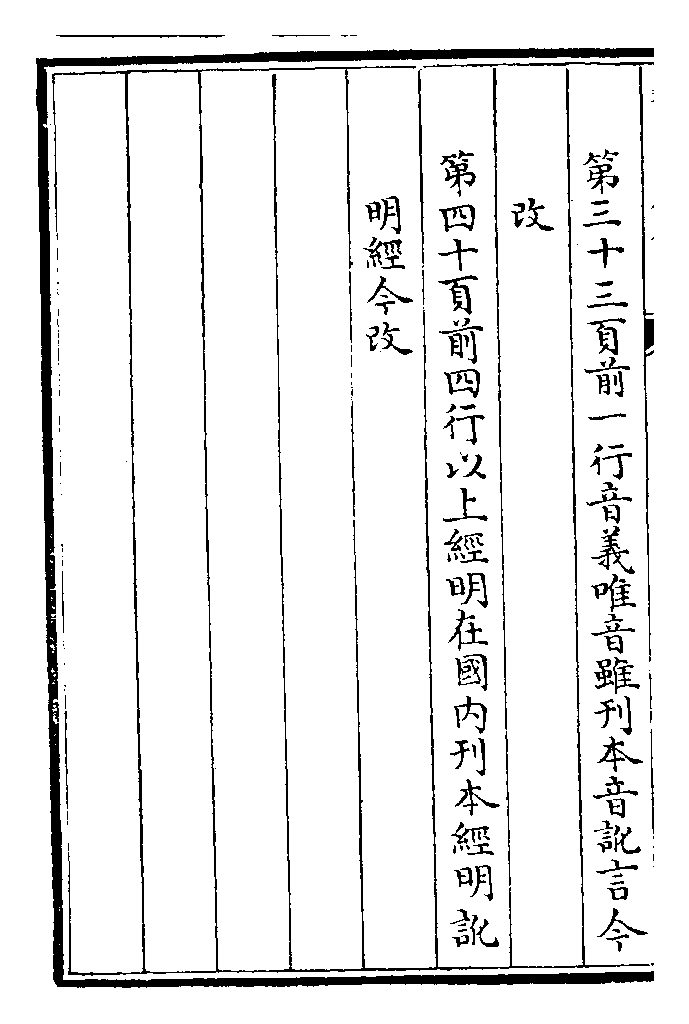 第三十三頁前一行音義唯音雖刊本音訛言今
改
第四十頁前四行以上經明在國内刊本經明訛
明經今改